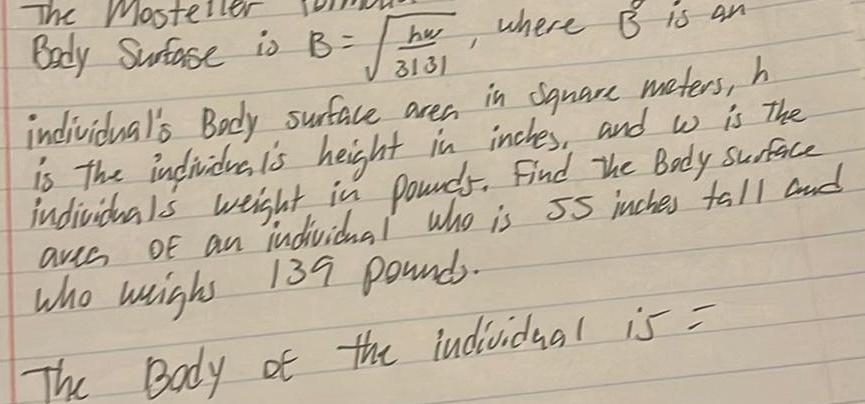 The Mosteller
Body Surfase is B = √(hw/3131), where B is an
individual's Body surface area in square meters, h
is the individual's height in inches, and w is the
individuals weight in pounds. Find The Body surface
area OF an individual who is 55 inches tall and
who weighs 139 pounds.
The Body of the individual is =